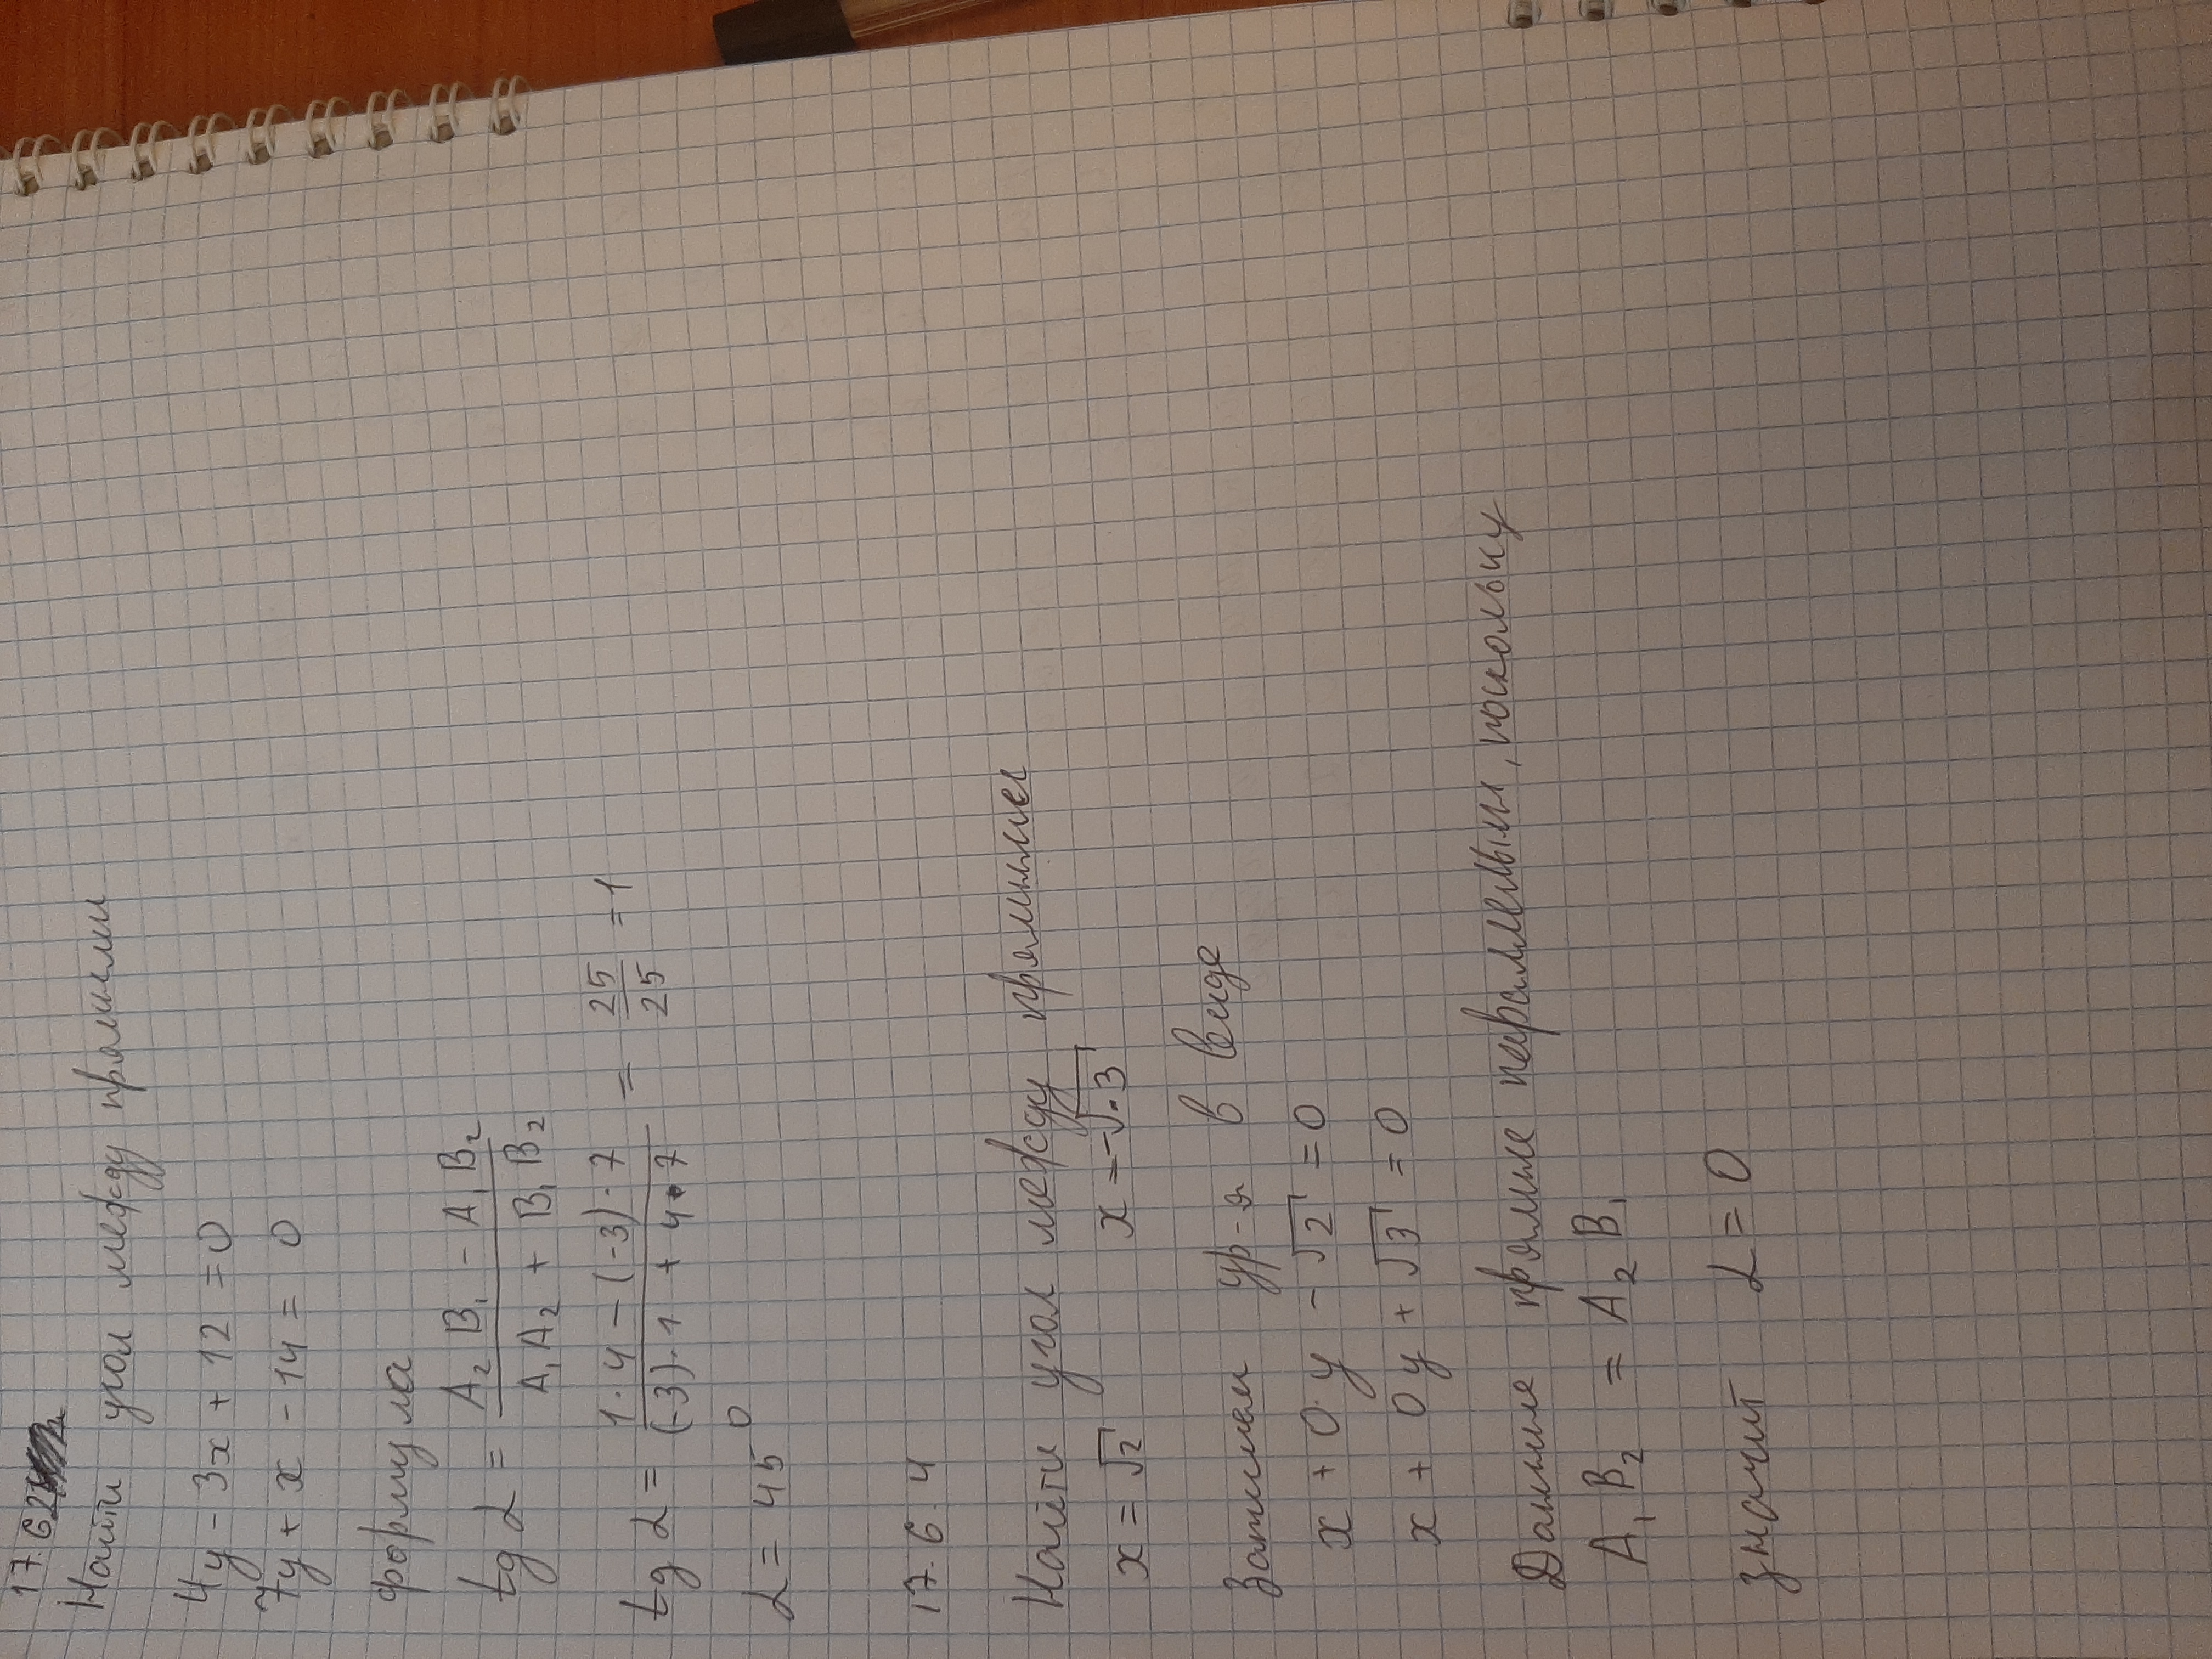 17.62
Найти угол между прямыми
4y - 3x + 12 = 0
7y + x - 14 = 0
формула
tg α = (A₂ B₁ - A₁ B₂) / (A₁ A₂ + B₁ B₂)
tg α = (1·4 - (-3)·7) / ((-3)·1 + 4·7) = 25/25 = 1
α = 45°
17.6.4
Найти угол между прямыми
x = √2 x = -√3
Запишем ур-я в виде
x + 0·y - √2 = 0
x + 0y + √3 = 0
Данные прямые параллельны, поскольку
A₁ B₂ = A₂ B₁
значит α = 0